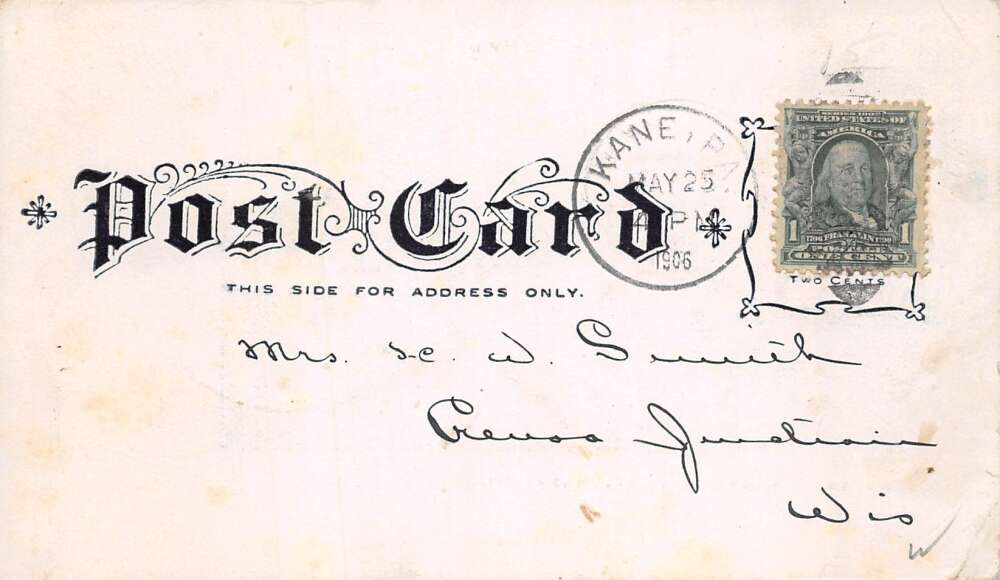 SERIES 1902
UNITED STATES OF
AMERICA
KANE, PA.
MAY 25
PM
1906
Post Card
1 1706 FRANKLIN 1790 1
POSTAGE
ONE CENT
TWO CENTS
THIS SIDE FOR ADDRESS ONLY.
Mrs. W. Smith
Junction
Wis